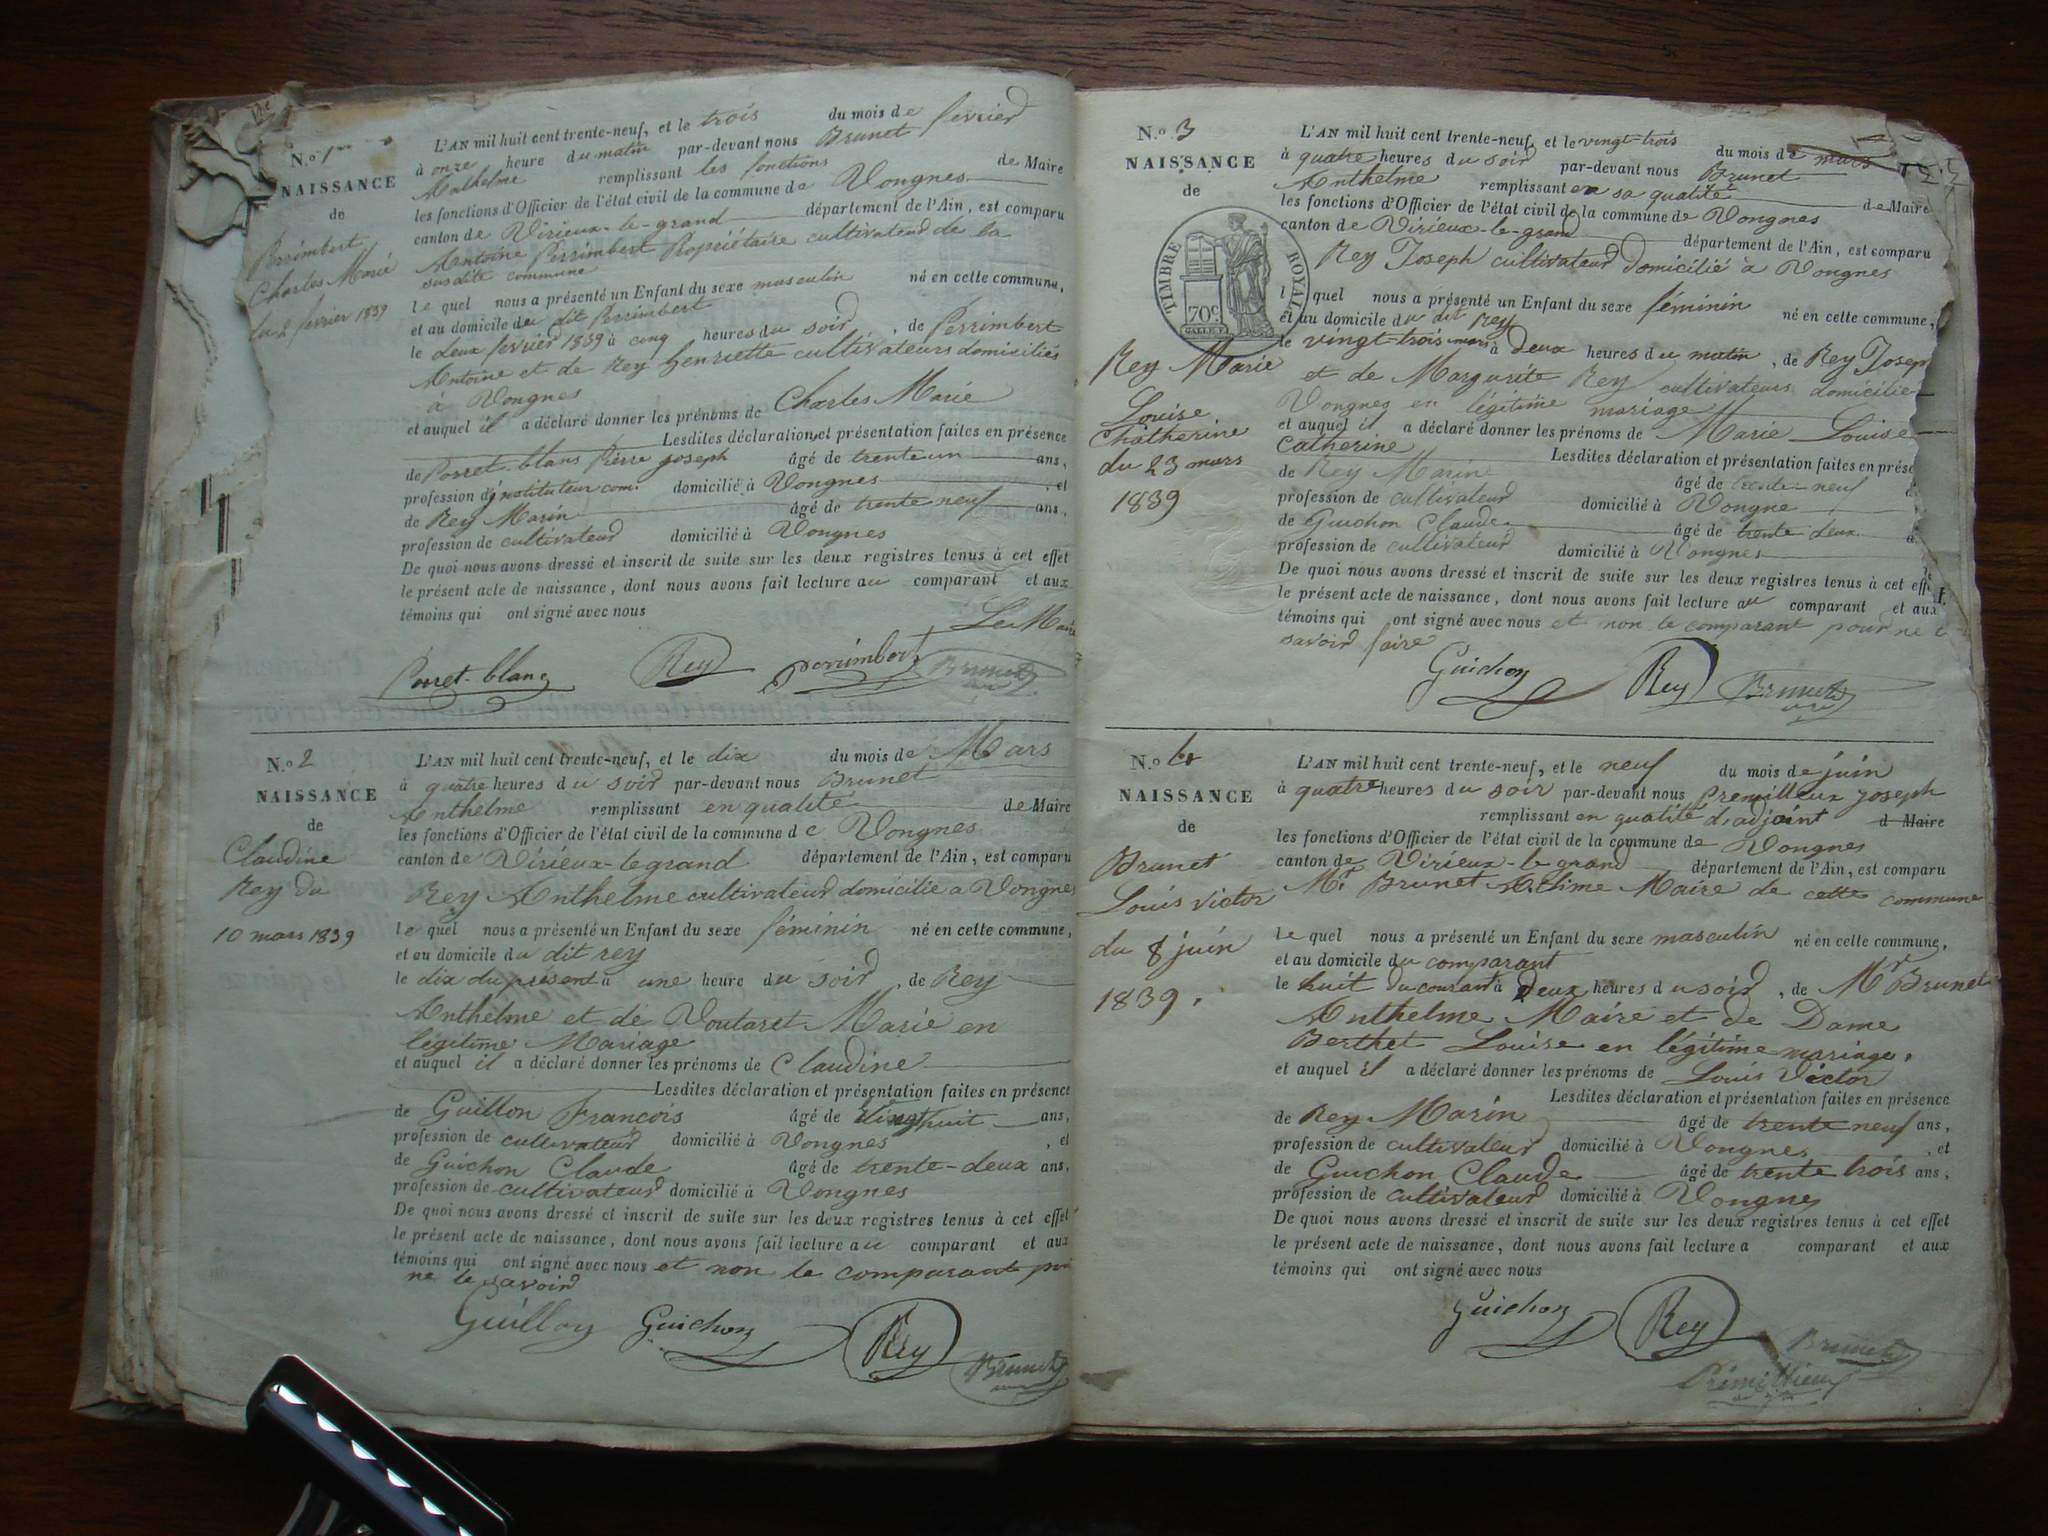 N.o 1er
NAISSANCE
de
Perrimbert
Charles Marie
du 2 fevrier 1839
L'AN mil huit cent trente-neuf, et le trois du mois de fevrier
à onze heure du matin par-devant nous Brunet
Anthelme remplissant les fonctions de Maire
les fonctions d'Officier de l'état civil de la commune de Vongnes
canton de Virieux-le-grand département de l'Ain, est comparu
Antoine Perrimbert Propriétaire cultivateur de la
susdite commune
le quel nous a présenté un Enfant du sexe masculin né en cette commune,
et au domicile du dit Perrimbert
le deux fevrier 1839 à cinq heures du soir, de Perrimbert
Antoine et de Rey henriette cultivateurs domiciliés
à Vongnes
et auquel il a déclaré donner les prénoms de Charles Marie
Lesdites déclaration et présentation faites en présence
de Porret-blanc Pierre joseph âgé de trente un ans,
profession d'instituteur com. domicilié à Vongnes, et
de Rey Marin âgé de trente neuf ans,
profession de cultivateur domicilié à Vongnes
De quoi nous avons dressé et inscrit de suite sur les deux registres tenus à cet effet
le présent acte de naissance, dont nous avons fait lecture au comparant et aux
témoins qui ont signé avec nous
Le Maire
Porret-blanc Rey perrimbert Brunet
N.o 2
NAISSANCE
de
Claudine
Rey du
10 mars 1839
L'AN mil huit cent trente-neuf, et le dix du mois de Mars
à quatre heures du soir par-devant nous Brunet
Anthelme remplissant en qualité de Maire
les fonctions d'Officier de l'état civil de la commune de Vongnes
canton de Virieux-legrand département de l'Ain, est comparu
Rey Anthelme cultivateur domicilie a Vongnes
le quel nous a présenté un Enfant du sexe féminin né en cette commune,
et au domicile du dit rey
le dix du présent à une heure du soir, de Rey
Anthelme et de Voutaret Marie en
légitime Mariage
et auquel il a déclaré donner les prénoms de Claudine
Lesdites déclaration et présentation faites en présence
de Guillon François âgé de vingt huit ans,
profession de cultivateur domicilié à Vongnes, et
de Guichon Claude âgé de trente-deux ans,
profession de cultivateur domicilié à Vongnes
De quoi nous avons dressé et inscrit de suite sur les deux registres tenus à cet effet
le présent acte de naissance, dont nous avons fait lecture au comparant et aux
témoins qui ont signé avec nous et non le comparant pour
ne le savoir
Guillon Guichon Rey Brunet
N.o 3
NAISSANCE
de
TIMBRE ROYAL
70c
Rey Marie
Louise
Chatherine
du 23 mars
1839
L'AN mil huit cent trente-neuf, et le vingt-trois du mois de mars
à quatre heures du soir par-devant nous Brunet
Anthelme remplissant en sa qualité de Maire
les fonctions d'Officier de l'état civil de la commune de Vongnes
canton de Virieux-le-grand département de l'Ain, est comparu
Rey Joseph cultivateur domicilié à Vongnes
l quel nous a présenté un Enfant du sexe féminin né en cette commune,
et au domicile du dit Rey
le vingt-trois mars à deux heures du matin, de Rey Joseph
et de Margurite Rey cultivateurs domicilie
Vongnes en légitime mariage
et auquel il a déclaré donner les prénoms de Marie Louise
Catherine Lesdites déclaration et présentation faites en prése
de Rey Marin âgé de trente-neuf
profession de cultivateur domicilié à Vongne
de Guichon Claude âgé de trente deux
profession de cultivateur domicilié à Vongnes
De quoi nous avons dressé et inscrit de suite sur les deux registres tenus à cet effe
le présent acte de naissance, dont nous avons fait lecture au comparant et aux
témoins qui ont signé avec nous et non le comparant pour ne le
savoir faire
Guichon Rey Brunet
N.o 4
NAISSANCE
de
Brunet
Louis Victor
du 8 juin
1839.
L'AN mil huit cent trente-neuf, et le neuf du mois de juin
à quatre heures du soir par-devant nous Premillieux joseph
remplissant en qualité d'adjoint d Maire
les fonctions d'Officier de l'état civil de la commune de Vongnes
canton de Virieux-le grand département de l'Ain, est comparu
Mr Brunet Maire de cette commune
le quel nous a présenté un Enfant du sexe masculin né en cette commune,
et au domicile du comparant
le huit du courant à deux heures du soir, de Mr Brunet
Anthelme Maire et de Dame
Berthet Louise en légitime mariage.
et auquel il a déclaré donner les prénoms de Louis Victor
Lesdites déclaration et présentation faites en présence
de Rey Marin âgé de trente neuf ans,
profession de cultivateur domicilié à Vongnes, et
de Guichon Claude âgé de trente trois ans,
profession de cultivateur domicilié à Vongnes
De quoi nous avons dressé et inscrit de suite sur les deux registres tenus à cet effet
le présent acte de naissance, dont nous avons fait lecture a comparant et aux
témoins qui ont signé avec nous
Guichon Rey Brunet
Prémillieux